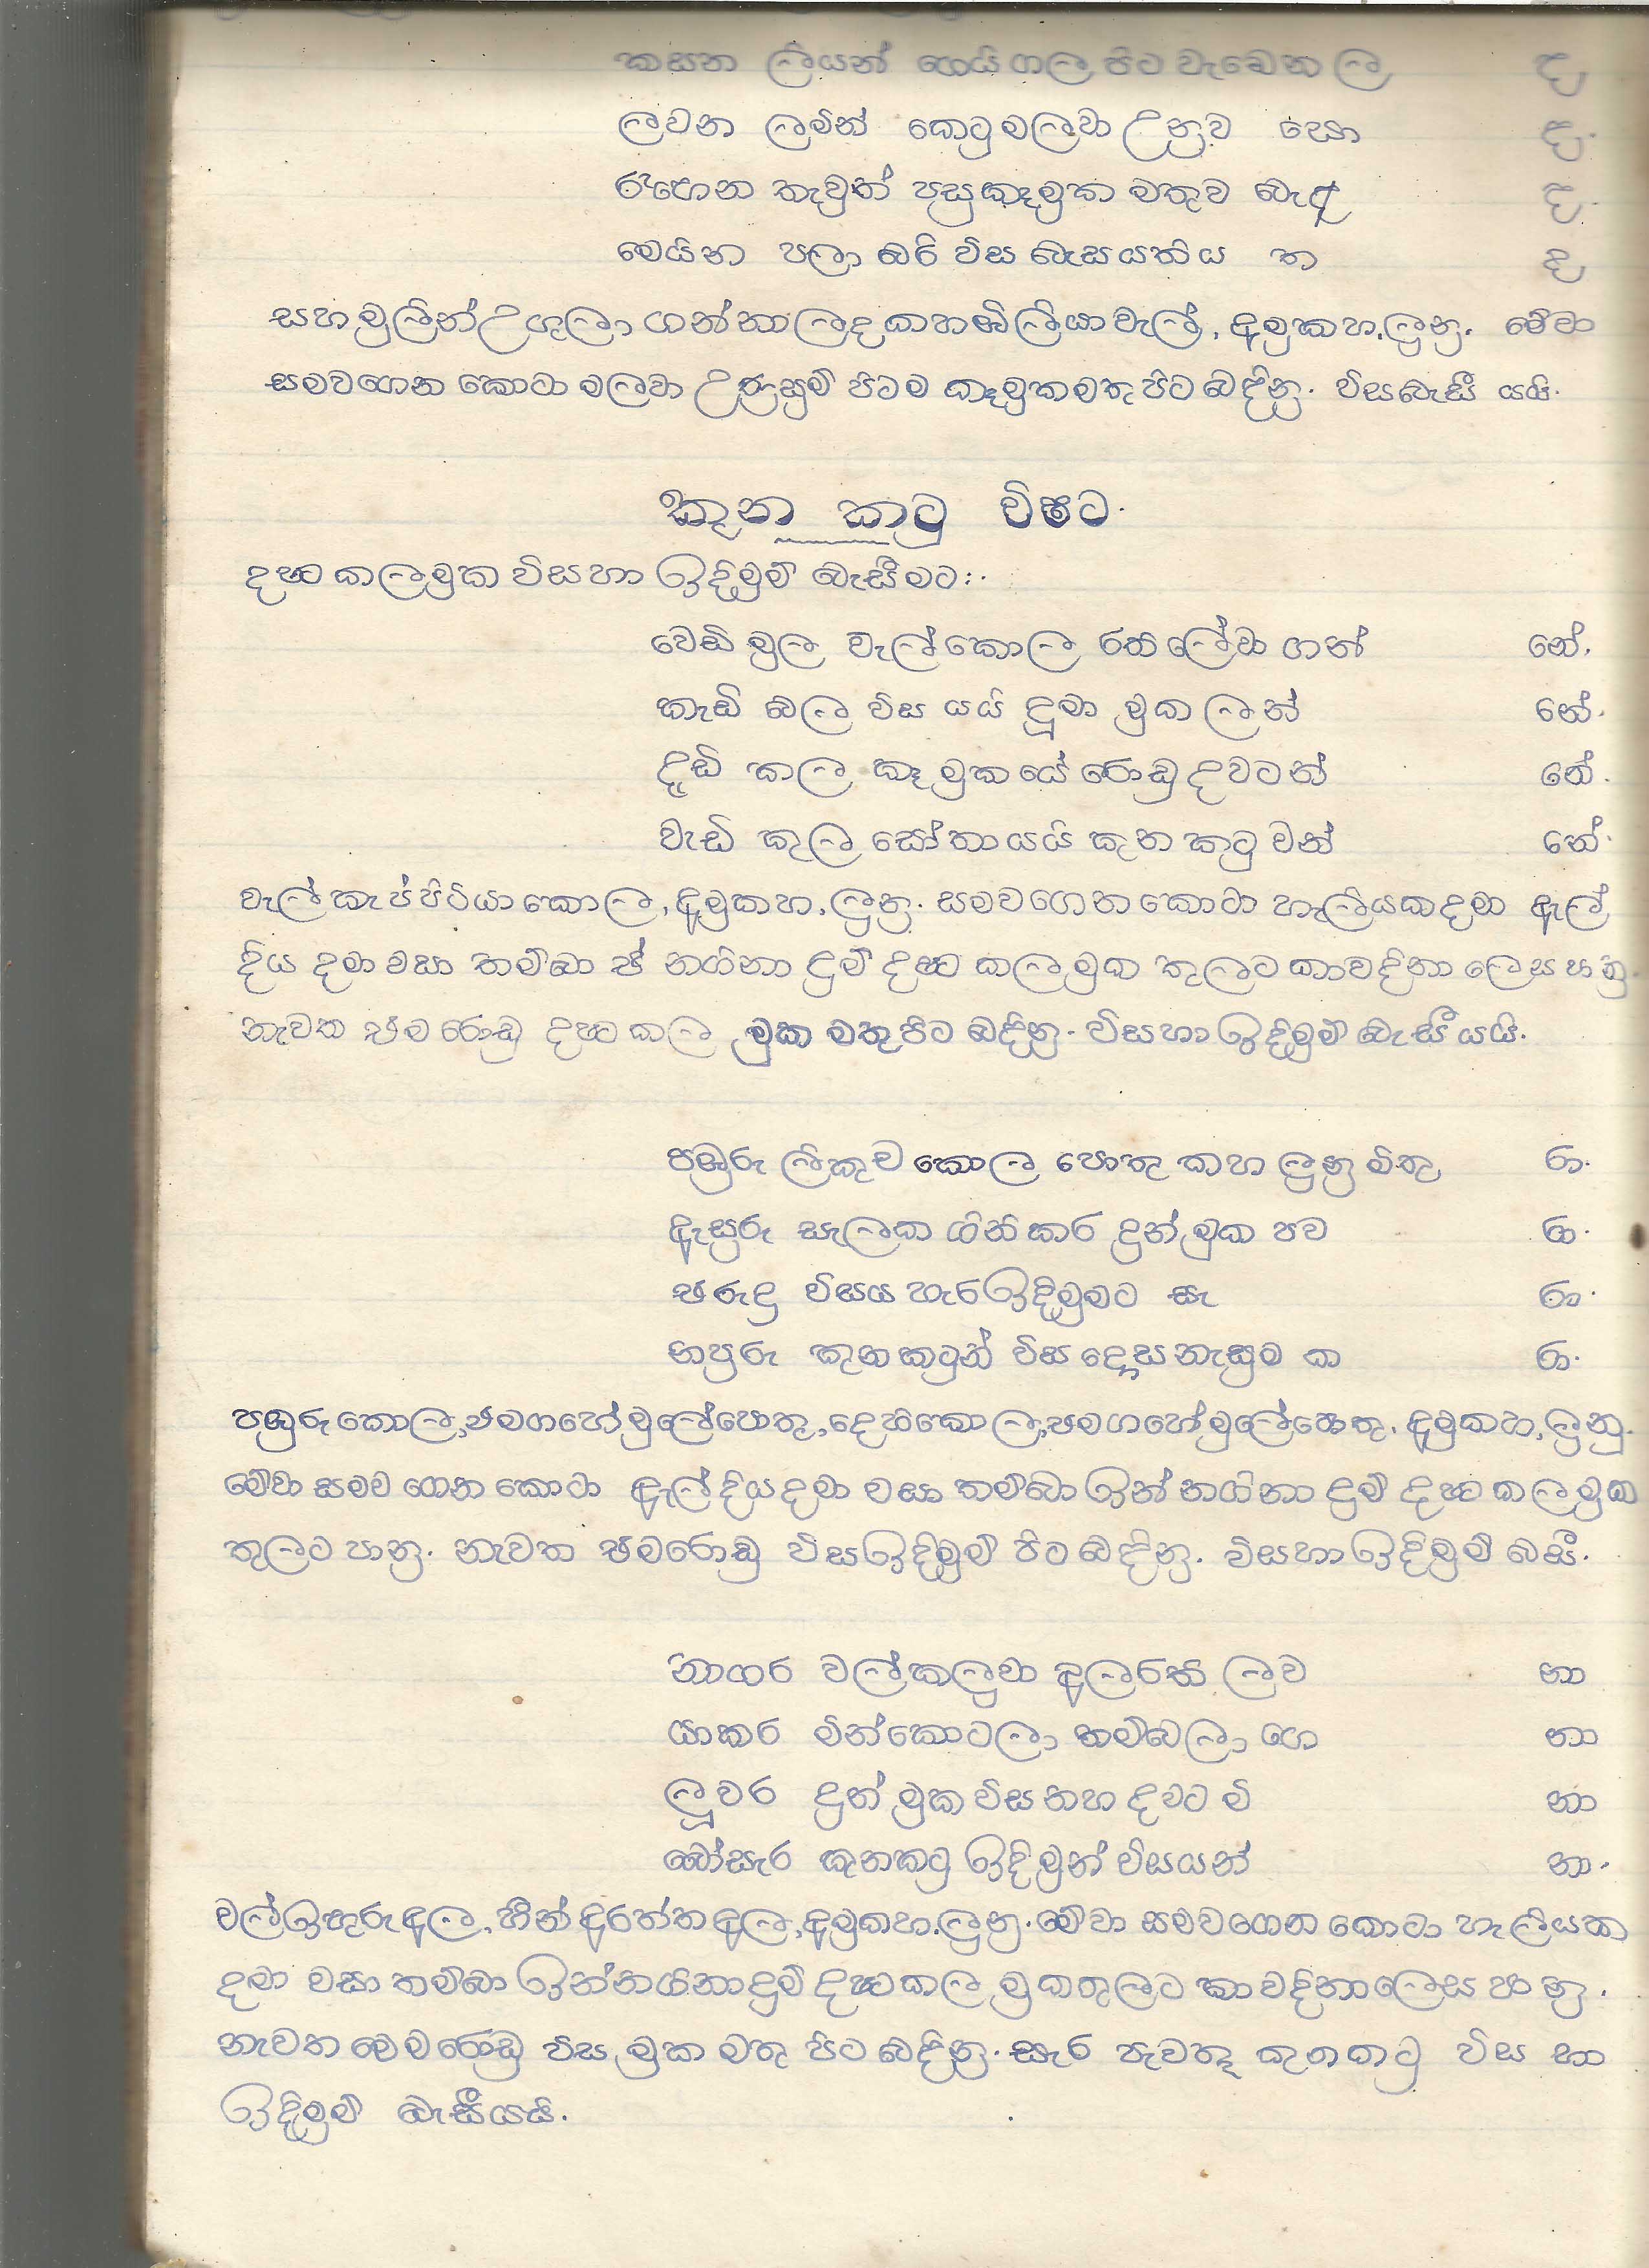 කසන ලියන් ගෙයි ගල පිට වැඩෙන ල ද
ලවන ලමින් කොටු මලවා උනුව සො ද.
රැගෙන තැවුත් පසු කෑමුක මතුව බැඳ ද.
මෙයින පලා බරි විස බැසයතිය ත ද
සහමුලින් උගුලා ගන්නාලද කහඹිලියා වැල්, අමුකහ, ලුනු. මේවා
සමවගෙන කොටා මලවා උණුසුම් පිටම කෑමුකමතුපිට බඳිනු. විසබැසී යයි.
කුන කටු විෂට.
දෂ්ට කලමුක විසහා ඉදිමුම් බැසීමට:.
වෙඩි මුල වැල්කොල රතිලේවා ගන් නේ.
කැඩි බල විස යයි දූමා මුක ලන් නේ.
දැඩි කල කෑ මුකයේ රොඩු දවටන් නේ.
වැඩි කුල සෝතායයි කුන කටු වන් නේ.
වැල් කැප්පිටියා කොල, අමුකහ, ලුනු. සමවගෙන කොටා හැලියකදමා ඇල්
දිය දමා වසා තම්බා එ් නගිනා දුම් දෂ්ට කල මුක තුලට කාවදිනා ලෙස පානු.
නැවත එ්ම රොඩු දෂ්ට කල මුක මතුපිට බඳිනු. විසහා ඉදිමුම් බැසී යයි.
පඹුරු ලිකුච කොල පොතු කහ ලුනු මිතු රා.
ඇසුරු සැලක ගිනි කර දුන් මුක පව රා.
එරුදු විසය හැර ඉදිමුමට සැ රා.
නපුරු කුනකටුන් විස දොසනැසුම ක රා.
පඹුරු කොල, එ්මගහේ මුලේ පොතු, දෙහිකොල, එ්මගහේ මුලේ පොතු. අමුකහ, ලුනු.
මේවා සමව ගෙන කොටා ඇල් දිය දමා වසා තම්බා ඉන් නගිනා දුම් දෂ්ට කල මුක
තුලට පානු. නැවත එ්මරොඩු විසඉදිමුම් පිට බඳිනු. විසහා ඉදිමුම් බසී.
නාගර වල්කලුවා අලරති ලව නා
යාකර මින්කොටලා තම්බලා ගෙ නා
ලූවර දුන් මුක විසනහ දවට මි නා
බෝසැර කුනකටු ඉදිමුන් විසයන් නා.
වල්ඉඟුරු අල, හීන් අරත්ත අල, අමුකහ. ලුනු. මේවා සමවගෙන කොටා හැලියක
දමා වසා තම්බා ඉන්නගිනා දුම් දෂ්ටකල මුකතුලට කාවදිනාලෙස පානු.
නැවත මෙම රොඩු විස මුක මතු පිට බඳිනු. සැර පැවතූ කුනකටු විස හා
ඉදිමුම් බැසීයයි.